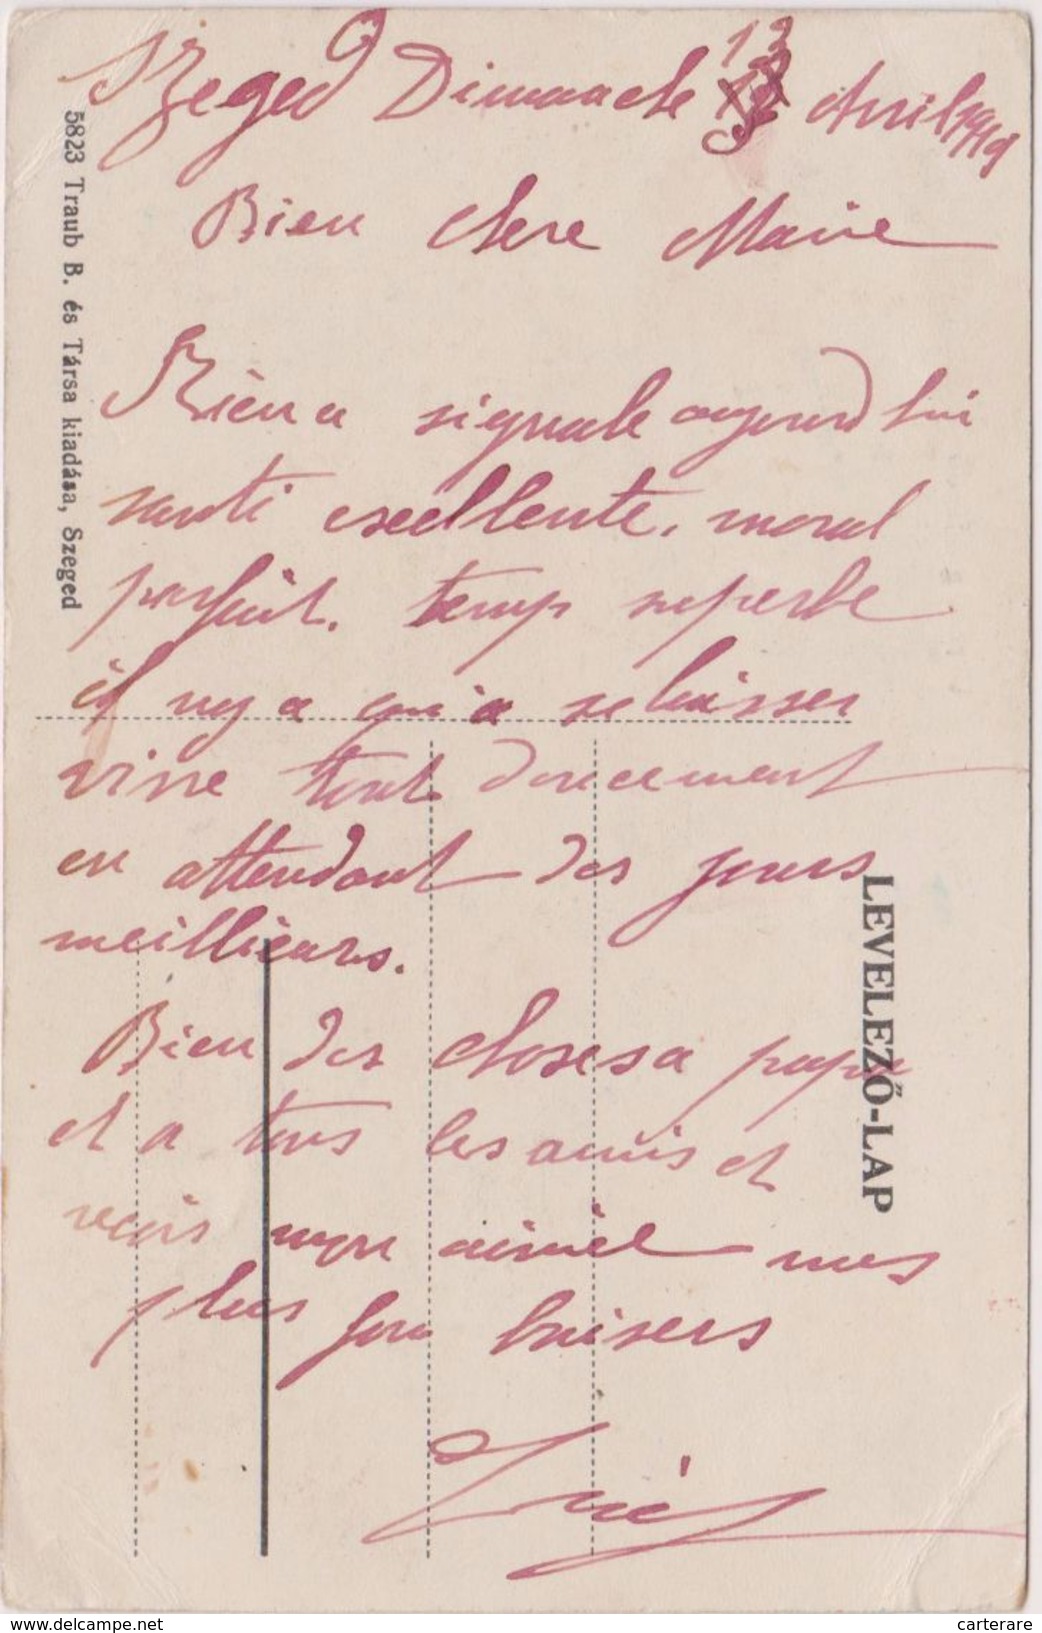 Szeged Dimanche 13 Avril 1919
Bien chere Marie
Rien a signale aujourd hui
santé excellente, moral
parfait. temp superbe
il ny a qu'a se laisser
vivre tout doucement
en attendant des jours
meillieurs.
Bien des choses a papa
et a tous les amis et
reçois mon aimée mes
plus fou baisers
5823 Traub B. és Társa kiadása, Szeged
LEVELEZŐ-LAP
www.delcampe.net
carterare